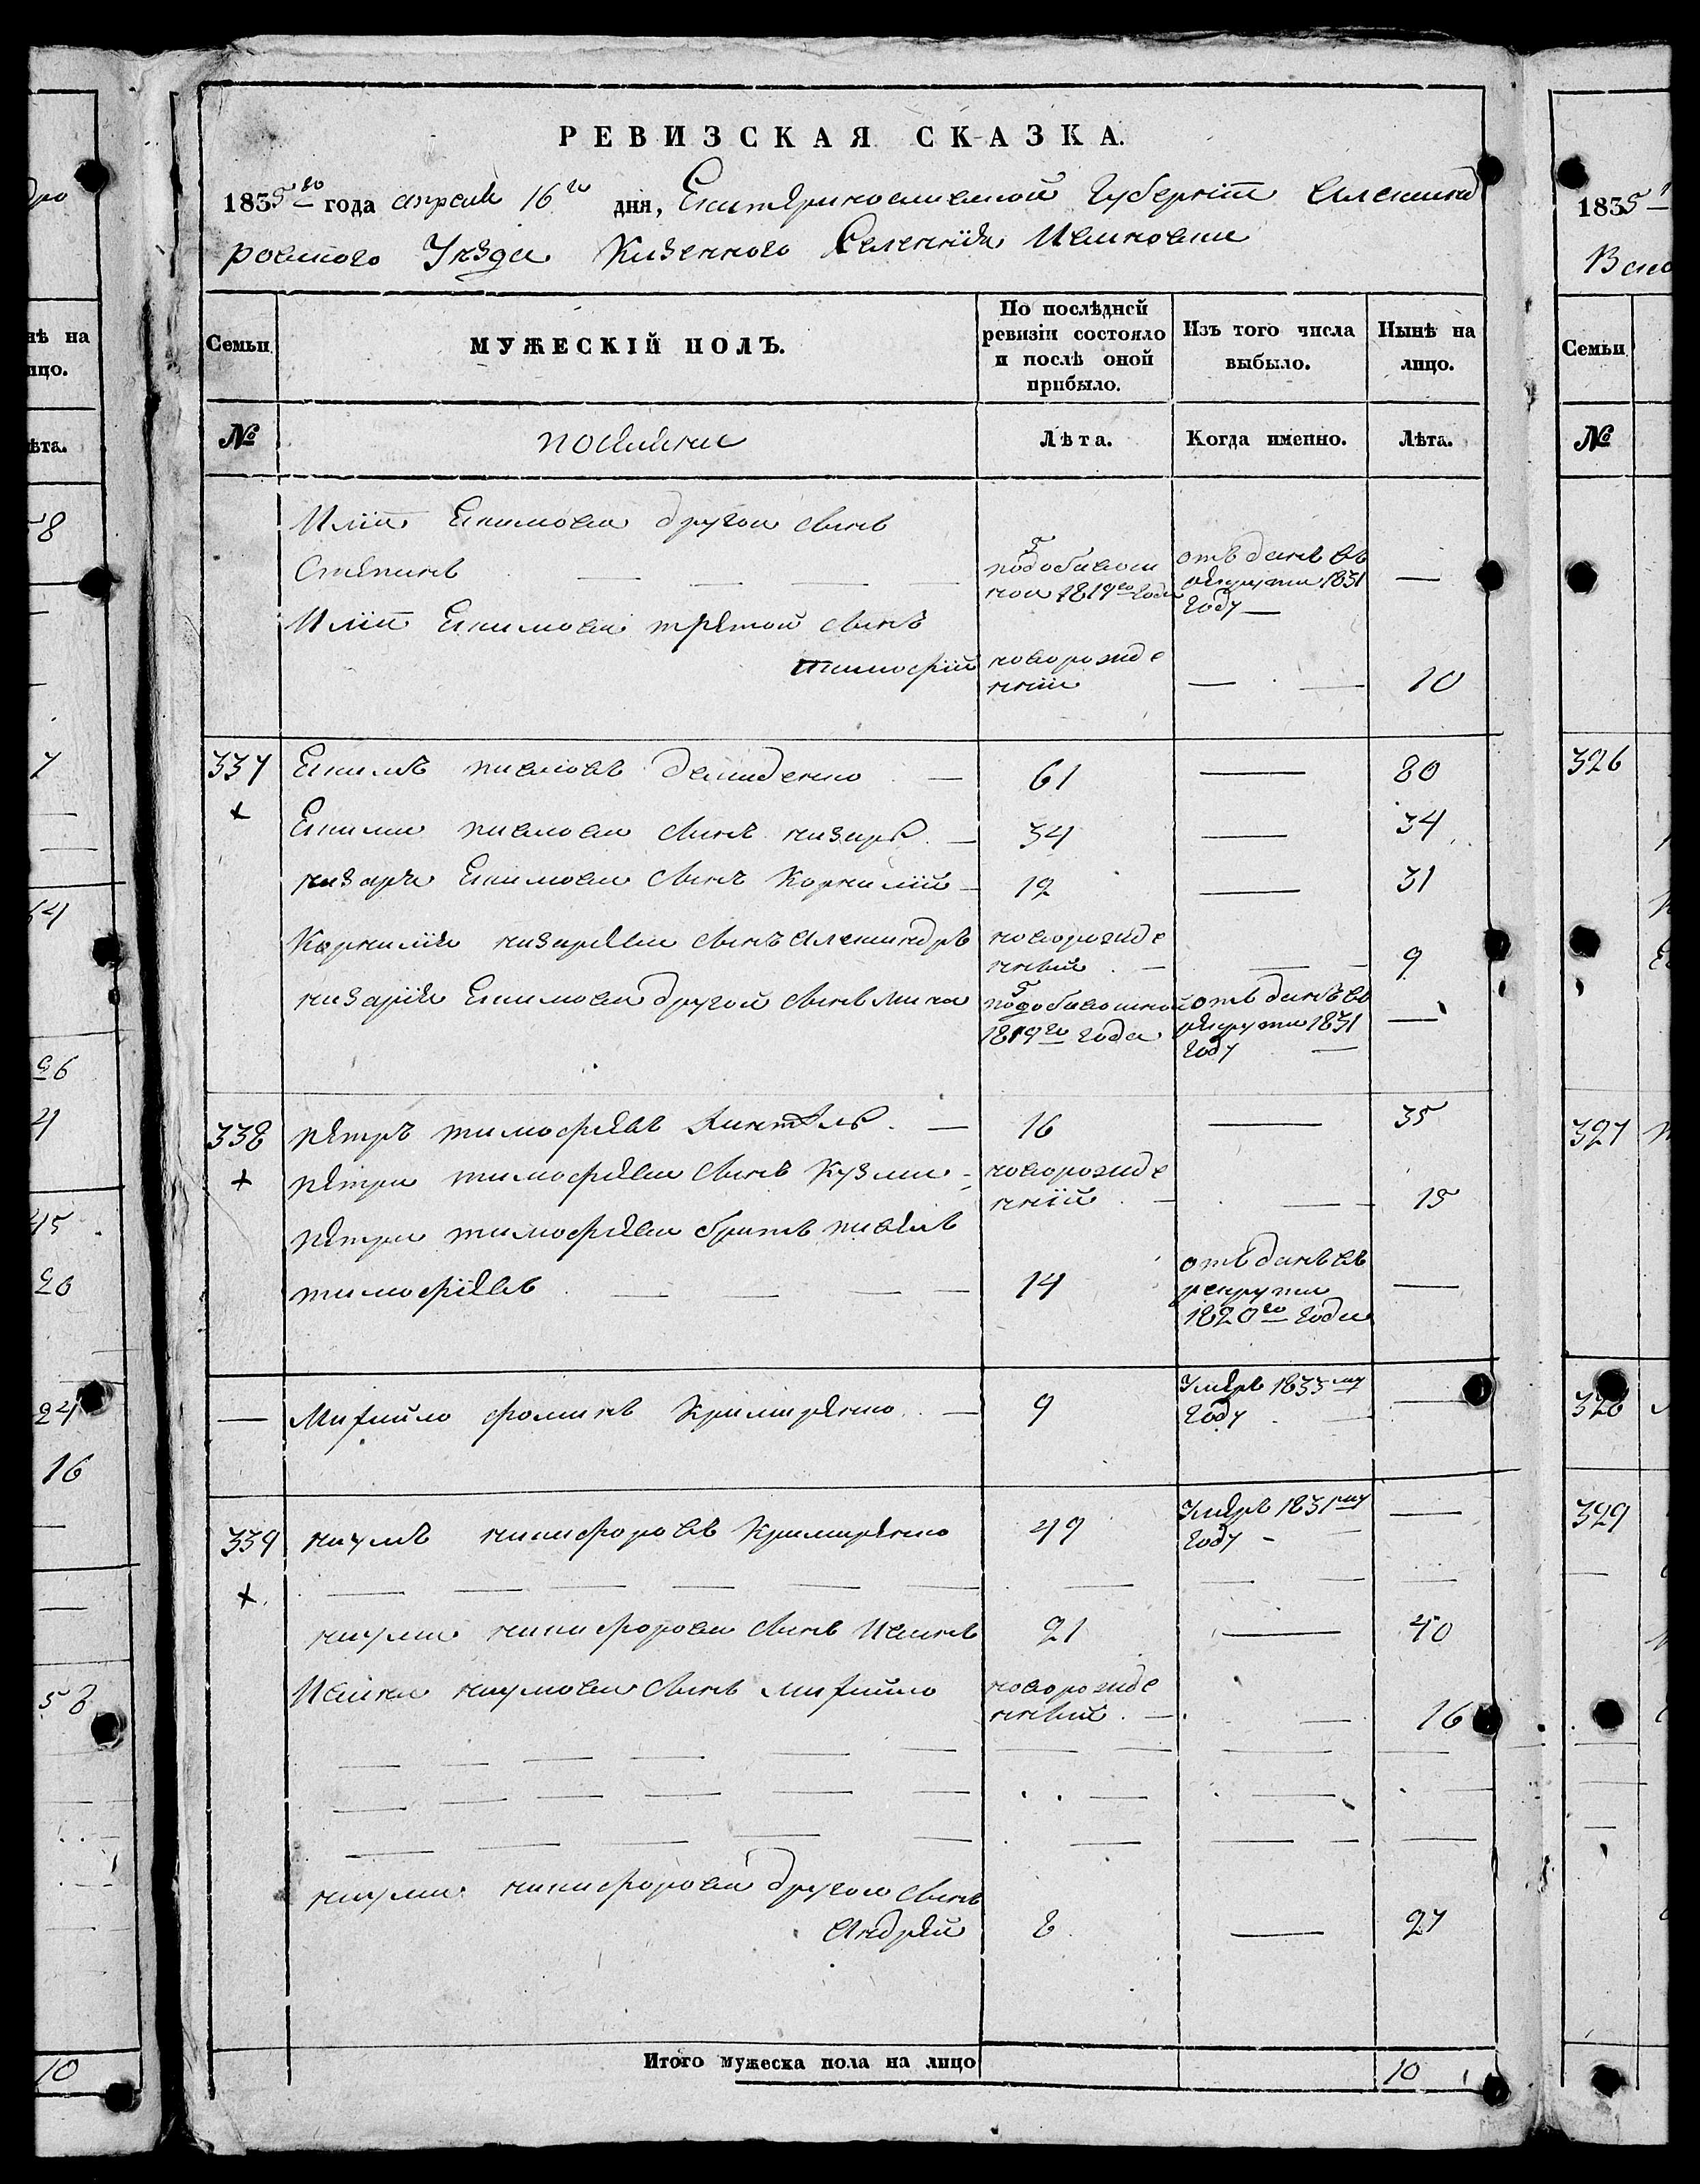 РЕВИЗСКАЯ СКАЗКА.
1835го года апреля 16го дня, Екатеринославской Губернии Александ
ровского Уезда Казенного Селения Ивановки
Семьи
МУЖЕСКІЙ ПОЛЪ.
По послѣдней ревизіи состояло и послѣ оной прибыло.
Изъ того числа выбыло.
Нынѣ на лицо.
№
Лѣта.
Когда именно.
Лѣта.
Иліи Екимова другои сынъ
Степанъ — — — — 5 1819го года отъданъ въ рекрути 1831 году — —
Иліи Екимова третой сынъ
тимофій новорожде нніи — — 10
337 Екимъ павловъ демиденко — 61 — 80
+ Екима павлова сынъ назаръ — 34 — 34
назара Екимова сынъ Корнилій — 12 — 31
Корнилія назарѣва сынъ Александръ новорожде нный — — — 9
назарія Екимова другой сынъ 5 1819го года отъданъ въ рекрути 1831 году — —
338 петръ тимофѣевъ — 16 — 35
+ петра тимофѣева сынъ Кузма новорожде нній — — — 15
петра тимофѣева братъ павелъ
тимофіевъ — — — — 14 отъданъ въ рекрути 1820го года —
— Михайло фоминъ — 9 Умеръ 1833му году — —
339 наумъ никифоровъ 49 Умеръ 1831му году — —
+
наума никифорова сынъ Иванъ 21 — 40
Ивана наумова сынъ михайло новорожде нный — — 16
наума никифорова другои сынъ
Андрей 8 — 27
Итого мужеска пола на лицо 10
1835
326
327
328
329
Семьи
№